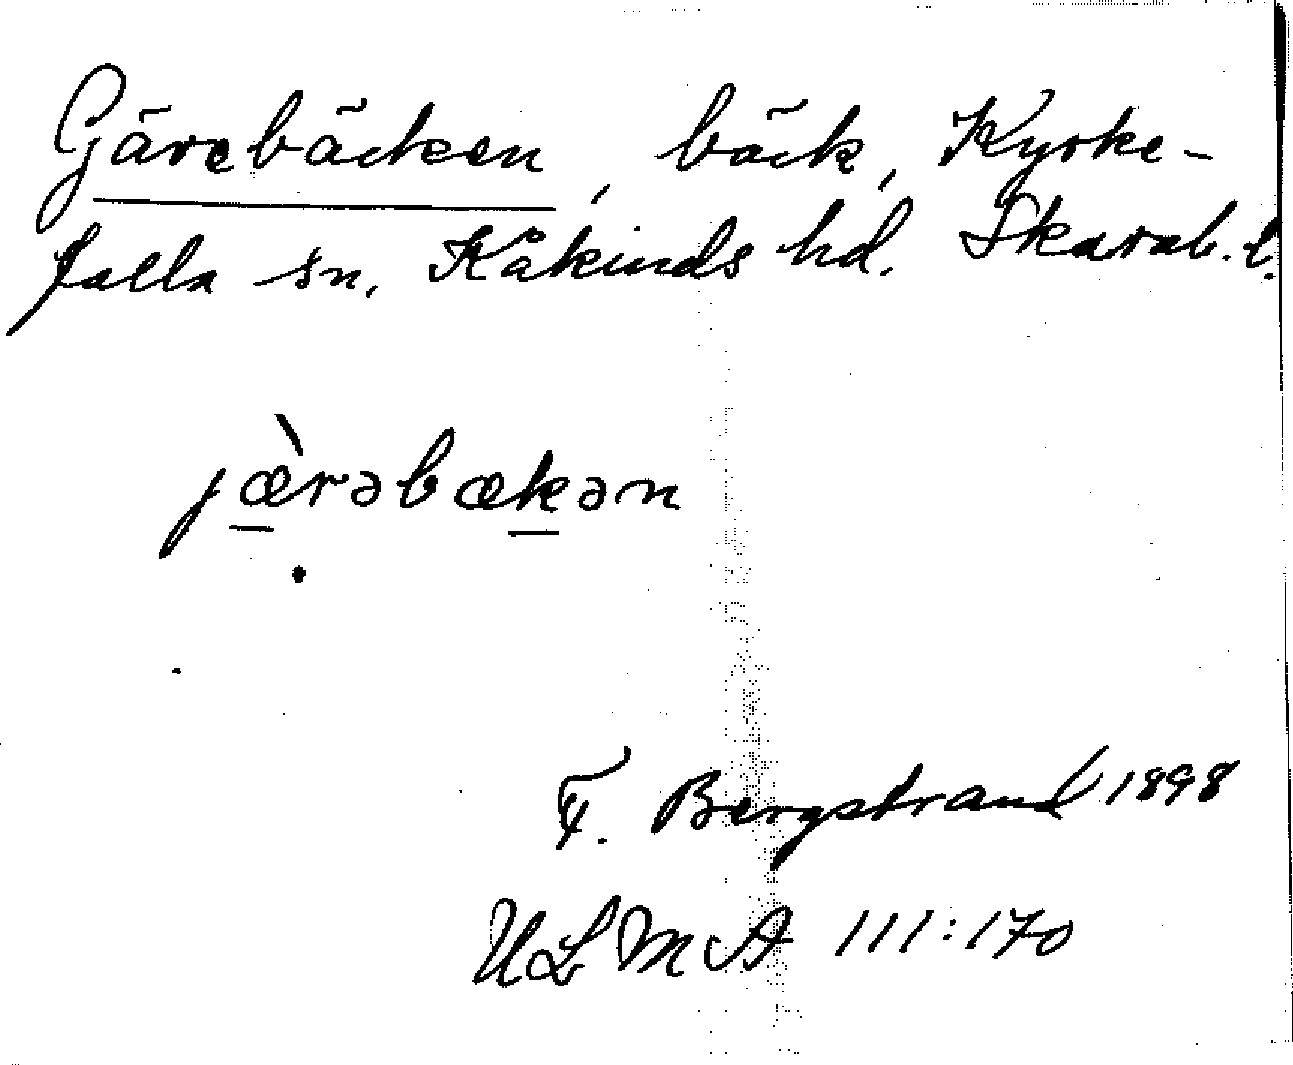 Gärebäcken, bäck, Kyrke-
falla sn. Kåkinds hd. Skarab. l.
jæ̀rəbækən
F. Bergstrand 1898
ULMA 111:170